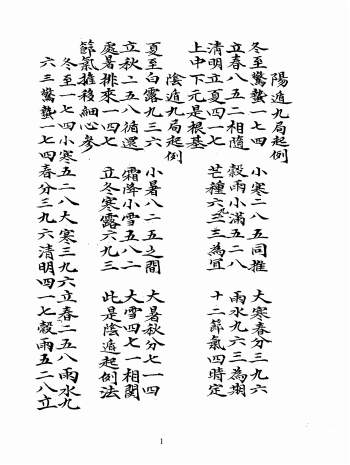 陽遁九局起例
冬至驚蟄一七四 小寒二八五同推 大寒春分三九六
立春八五二相隨 穀雨小滿五二八 雨水九六三為期
清明立夏四一七 芒種六九三為宜 十二節氣四時定
上中下元是根基
陰遁九局起例
夏至白露九三六 小暑八二五之間 大暑秋分七一四
立秋二五八循還 霜降小雪五八二 大雪四七一相関
處暑排來一四七 立冬寒露六九三 此是陰遁起例法
節氣推移細心參
冬至一七四小寒五二八大寒三九六立春二五八雨水九
六三驚蟄一七四春分三九六清明四一七穀雨五二八立
1